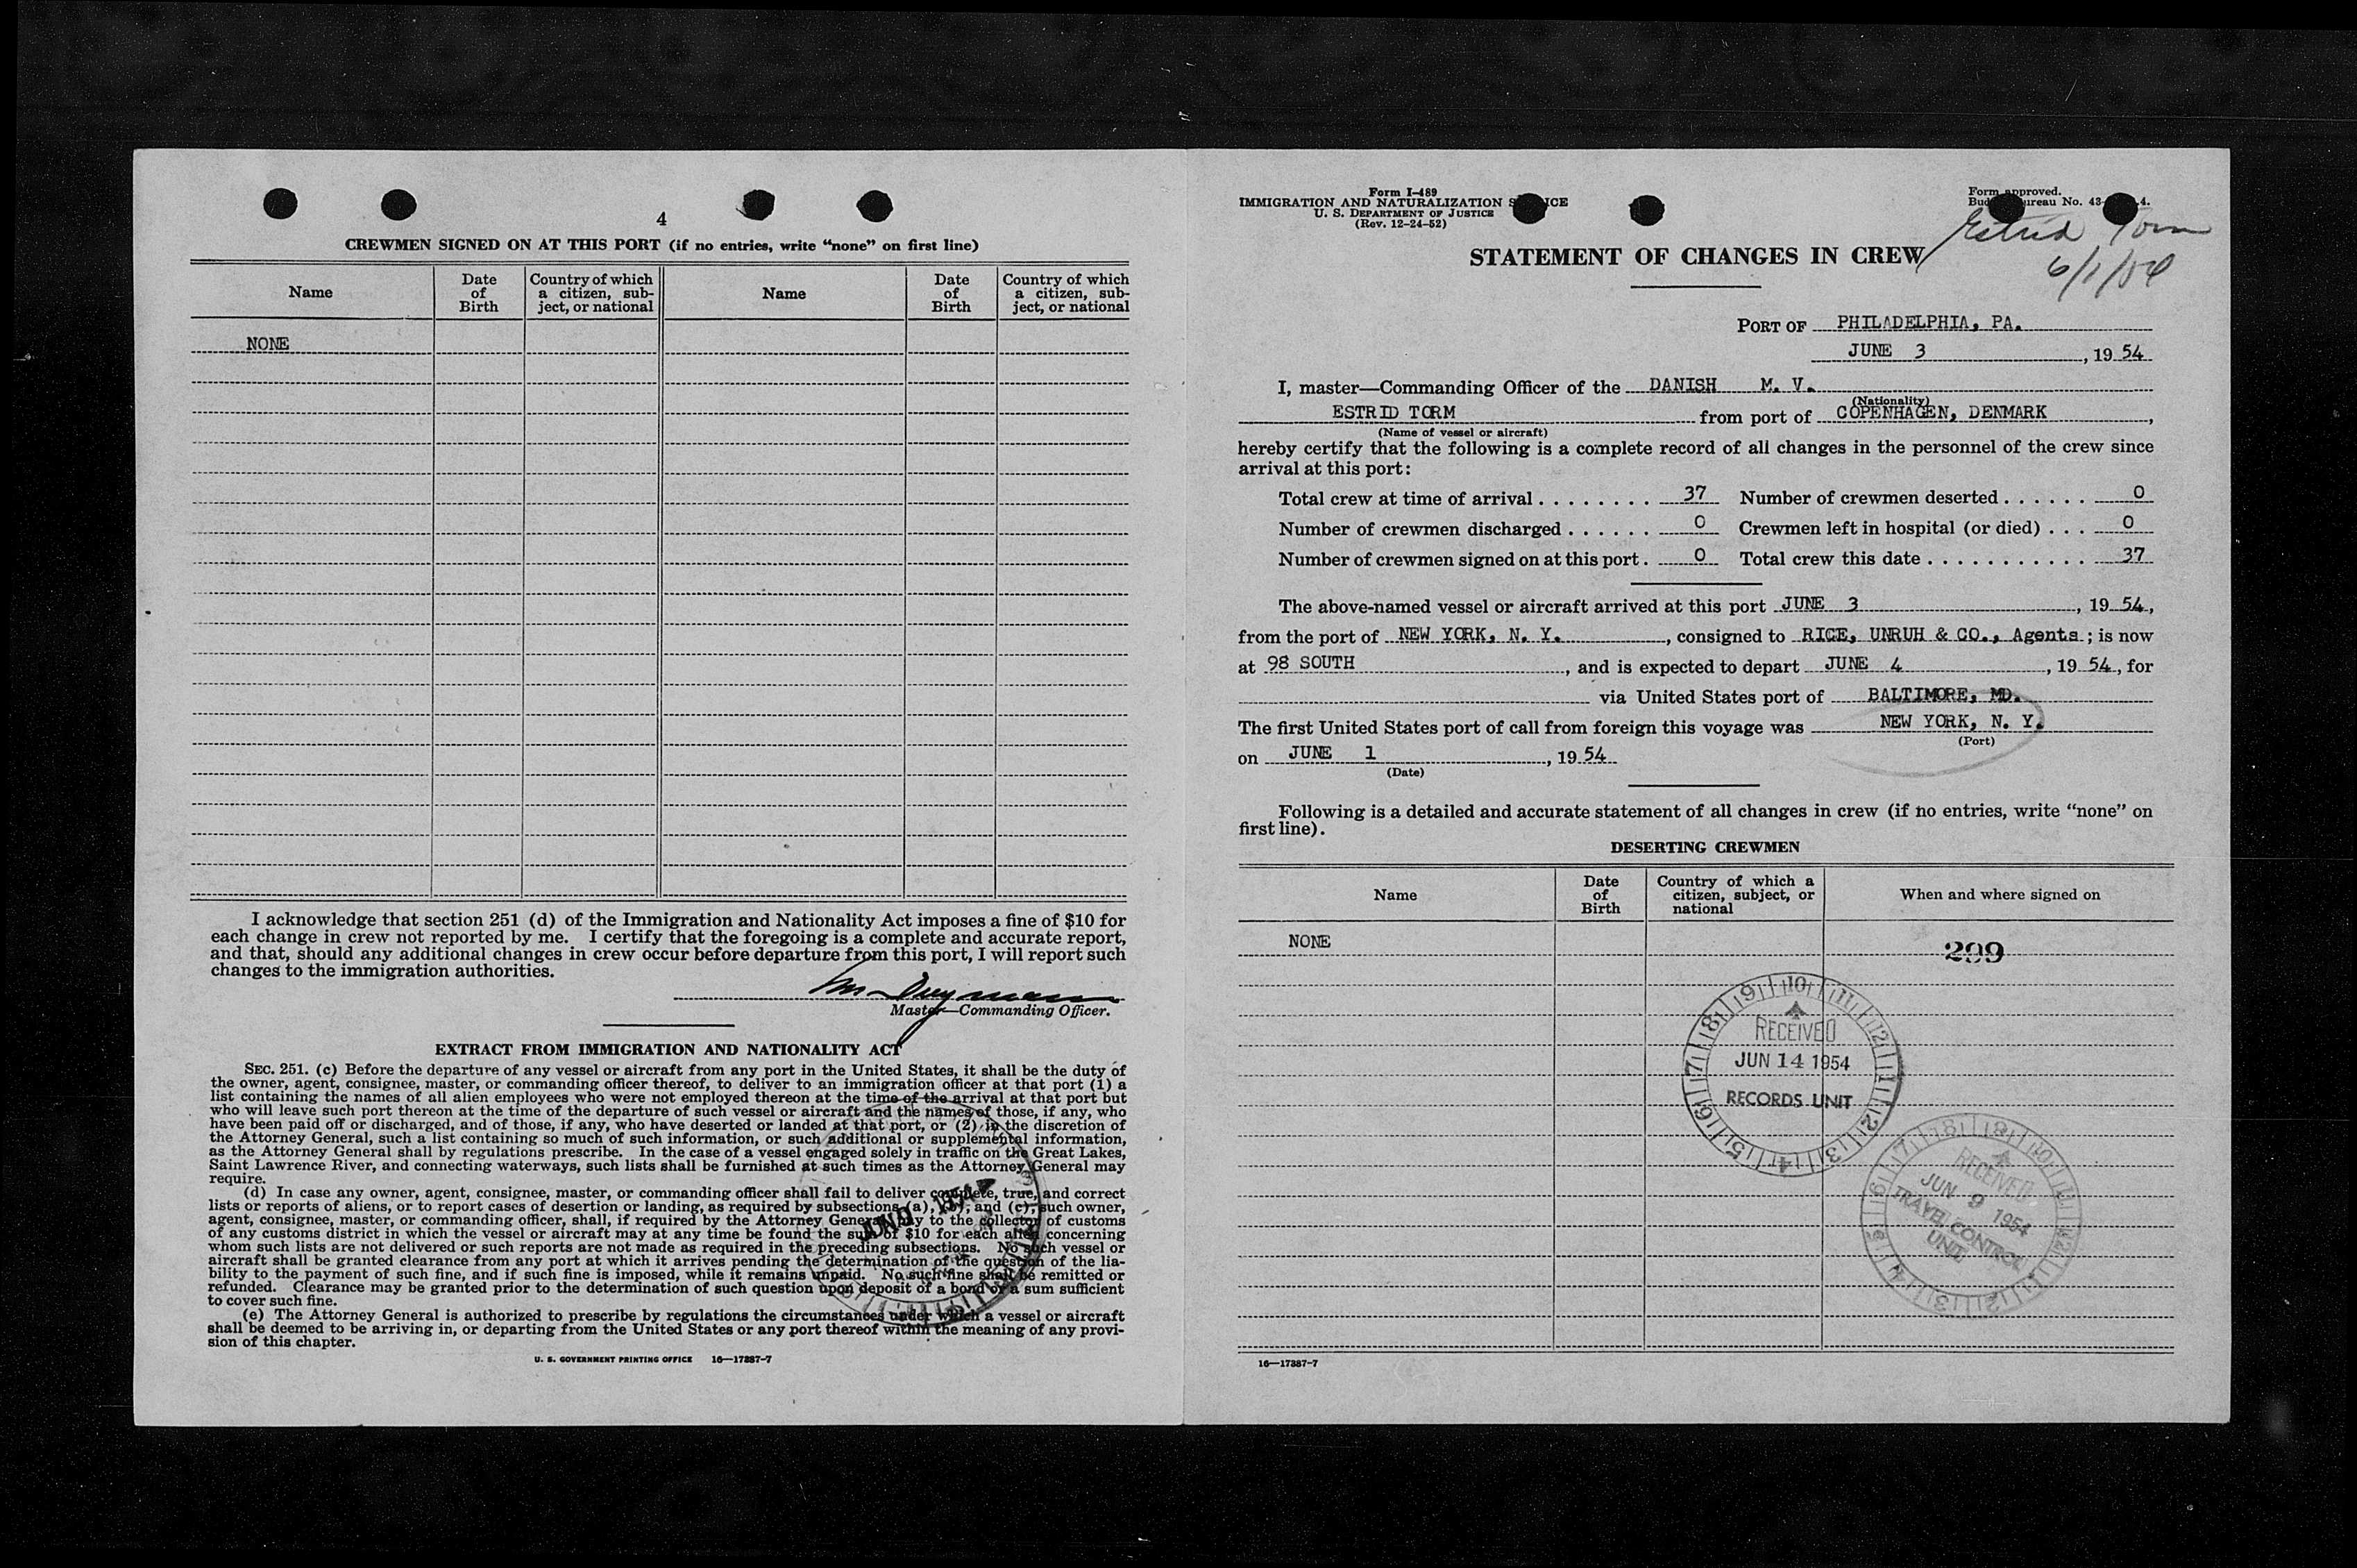 4
CREWMEN SIGNED ON AT THIS PORT (if no entries, write “none” on first line)
Name
Date of Birth
Country of which a citizen, sub-
ject, or national
Name
Date of Birth
Country of which a citizen, sub-
ject, or national
NONE
I acknowledge that section 251 (d) of the Immigration and Nationality Act imposes a fine of $10 for
each change in crew not reported by me. I certify that the foregoing is a complete and accurate report,
and that, should any additional changes in crew occur before departure from this port, I will report such
changes to the immigration authorities.
Master—Commanding Officer.
EXTRACT FROM IMMIGRATION AND NATIONALITY ACT
SEC. 251. (c) Before the departure of any vessel or aircraft from any port in the United States, it shall be the duty of
the owner, agent, consignee, master, or commanding officer thereof, to deliver to an immigration officer at that port (1) a
list containing the names of all alien employees who were not employed thereon at the time of the arrival at that port but
who will leave such port thereon at the time of the departure of such vessel or aircraft and the names of those, if any, who
have been paid off or discharged, and of those, if any, who have deserted or landed at that port, or (2) in the discretion of
the Attorney General, such a list containing so much of such information, or such additional or supplemental information,
as the Attorney General shall by regulations prescribe. In the case of a vessel engaged solely in traffic on the Great Lakes,
Saint Lawrence River, and connecting waterways, such lists shall be furnished at such times as the Attorney General may
require.
(d) In case any owner, agent, consignee, master, or commanding officer shall fail to deliver complete, true, and correct
lists or reports of aliens, or to report cases of desertion or landing, as required by subsections (a), (b), and (c), such owner,
agent, consignee, master, or commanding officer, shall, if required by the Attorney General, pay to the collector of customs
of any customs district in which the vessel or aircraft may at any time be found the sum of $10 for each alien concerning
whom such lists are not delivered or such reports are not made as required in the preceding subsections. No such vessel or
aircraft shall be granted clearance from any port at which it arrives pending the determination of the question of the lia-
bility to the payment of such fine, and if such fine is imposed, while it remains unpaid. No such fine shall be remitted or
refunded. Clearance may be granted prior to the determination of such question upon deposit of a bond or a sum sufficient
to cover such fine.
(e) The Attorney General is authorized to prescribe by regulations the circumstances under which a vessel or aircraft
shall be deemed to be arriving in, or departing from the United States or any port thereof within the meaning of any provi-
sion of this chapter.
JUN 9 1954
U. S. GOVERNMENT PRINTING OFFICE 16—17387-7
Form I-489
IMMIGRATION AND NATURALIZATION S ICE
U. S. DEPARTMENT OF JUSTICE
(Rev. 12-24-52)
Form approved.
Bud ureau No. 43- 4.
Estrid Torm
6/1/54
STATEMENT OF CHANGES IN CREW
PORT OF PHILADELPHIA, PA.
JUNE 3, 19 54
I, master—Commanding Officer of the DANISH M. V.
(Nationality)
ESTRID TORM from port of COPENHAGEN, DENMARK,
(Name of vessel or aircraft)
hereby certify that the following is a complete record of all changes in the personnel of the crew since
arrival at this port:
Total crew at time of arrival . . . . . . . . 37 Number of crewmen deserted . . . . . . 0
Number of crewmen discharged . . . . . . 0 Crewmen left in hospital (or died) . . . 0
Number of crewmen signed on at this port . 0 Total crew this date . . . . . . . . . . . 37
The above-named vessel or aircraft arrived at this port JUNE 3, 19 54,
from the port of NEW YORK, N. Y., consigned to RICE, UNRUH & CO., Agents ; is now
at 98 SOUTH, and is expected to depart JUNE 4, 19 54, for
via United States port of BALTIMORE, MD.
The first United States port of call from foreign this voyage was NEW YORK, N. Y.
(Port)
on JUNE 1, 19 54
(Date)
Following is a detailed and accurate statement of all changes in crew (if no entries, write “none” on
first line).
DESERTING CREWMEN
Name
Date of Birth
Country of which a citizen, subject, or national
When and where signed on
NONE
299
RECEIVED
JUN 14 1954
RECORDS UNIT
RECEIVED
JUN 9 1954
TRAVEL CONTROL
UNIT
16—17387-7